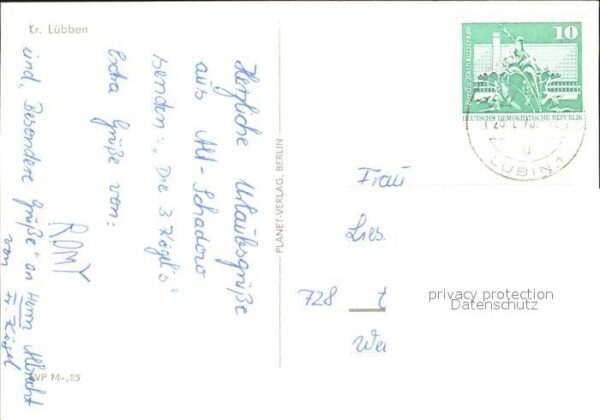 Kr. Lübben
Herzliche Urlaubsgrüße
aus Alt-Schadow
senden: „Die 3 Kögel's"
Extra Grüße von:
ROMY
und „Besondere
Grüße" an Herrn Albrecht
von Fr. Kögel
EVP M -,25
PLANET-VERLAG, BERLIN
10
Berlin Rathausstraße
DEUTSCHE DEMOKRATISCHE REPUBLIK
LÜBBEN 1
Frau
Lies.
728
We
privacy protection
Datenschutz